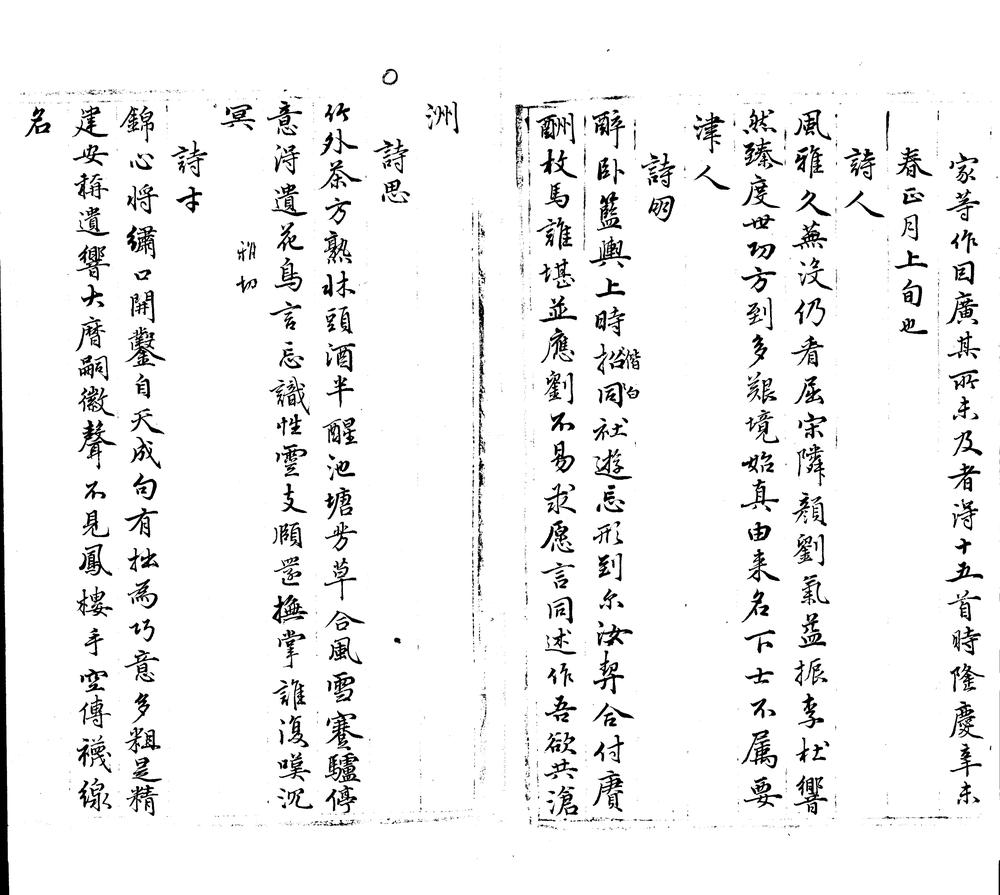 家等作因廣其所未及者得十五首時隆慶辛未
春正月上旬也
詩人
風雅久蕪没仍看屈宋隣顔劉氣益振李杜響
然臻度世功方到多艱境始真由来名下士不属要
津人
詩朋
醉卧籃輿上時招同社遊忘形到尔汝契合付賡
偕白
酬枚馬誰堪並應劉不易求愿言同述作吾欲共滄
洲
詩思
竹外茶方熟牀頭酒半醒池塘芳草合風雪蹇驢停
意得遺花鳥言忘識性霊支頤還撫掌誰復嘆沉
冥
雅切
詩才
錦心将繡口開鑿自天成句有拙為巧意多粗是精
建安稱遺響大曆嗣徽聲不見鳳樓手空傳襪線
名